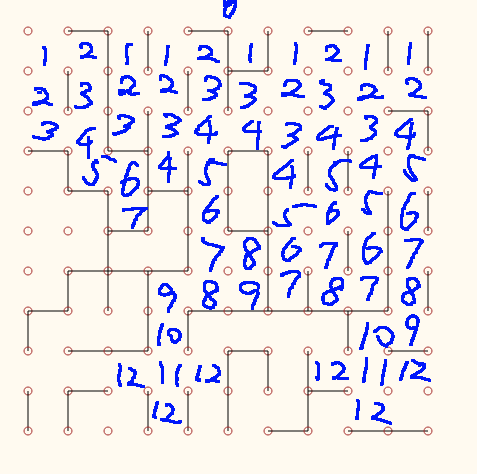 0
1 2 1 1 2 1 1 2 1 1
2 3 2 2 3 3 2 3 2 2
3 4 3 3 4 4 3 4 3 4
5 6 4 5 4 5 4 5
7 6 5 6 5 6
7 8 6 7 6 7
9 8 9 7 8 7 8
10 10 9
12 11 12 12 11 12
12 12